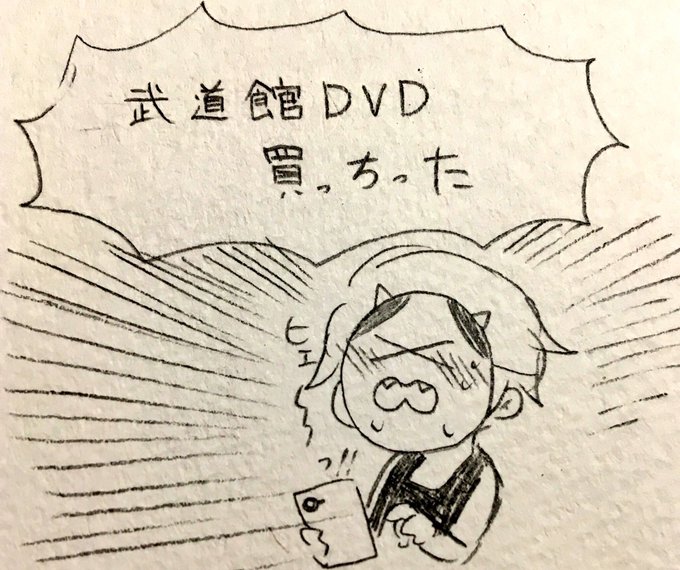 武道館DVD
買っちった
ヒェ〜〜っ!!